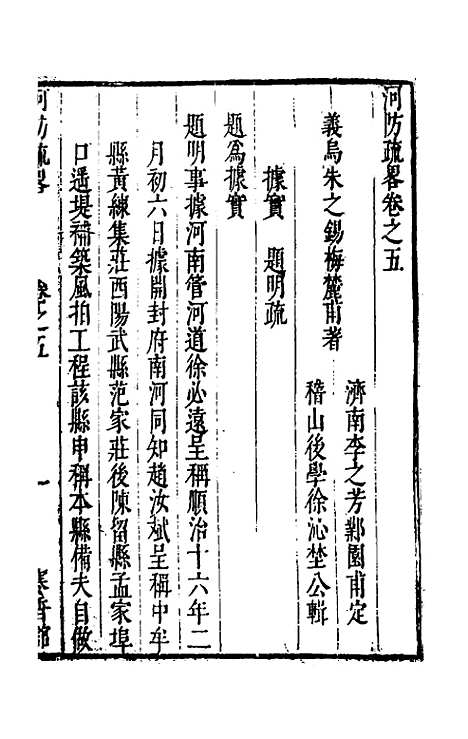 河防疏畧卷之五
濟南李之芳鄴園甫定
義烏朱之錫梅麓甫著
稽山後學徐沁埜公輯
據實 題明疏
題爲據實
題明事據河南管河道徐必遠呈稱順治十六年二
月初六日據開封府南河同知趙汝斌呈稱中牟
縣黃練集莊西陽武縣范家莊後陳留縣孟家埠
口遥堤補築風拍工程該縣申稱本縣備夫自做
河防疏畧 卷之五 一